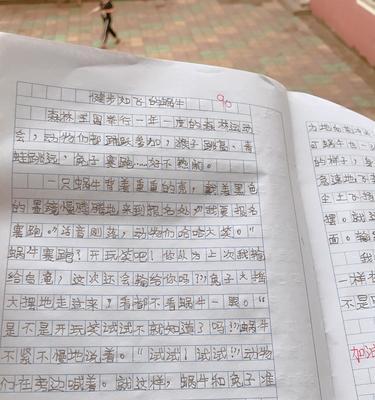 健步如飞的蜗牛 90
森林王国举行一年一度的森林运动
会，动物们都踊跃参加，猴子跳高、青
蛙跳远、兔子赛跑……好不热闹。
一只蜗牛背着重重的壳，戴着黑色
的墨镜慢腾腾地来到报名处，“我要报名
赛跑。”话音刚落，动物们哈哈大笑。“
蜗牛赛跑？开玩笑吧！你以为上次我输
给乌龟，这次还会输给你吗？”兔子大摇
大摆地走过来，看都不看蜗牛一眼。“
是不是开玩笑试试不就知道了吗？”蜗牛
不紧不慢地说着。“试试！试试！”动物
们在旁边喊着。就这样，蜗牛和兔子准
为地
可蜗牛也一
的样子，身
急速地飞
尘土飞扬
摆。就这
面。输
我
一样在
不是
加油